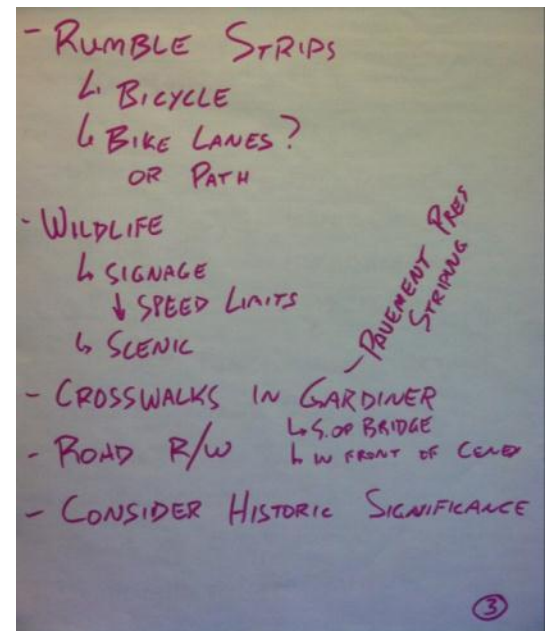 - RUMBLE STRIPS
↳ BICYCLE
↳ BIKE LANES?
OR PATH
- WILDLIFE
↳ SIGNAGE
↓ SPEED LIMITS
↳ SCENIC
- PAVEMENT PRES
STRIPING
- CROSSWALKS IN GARDINER
↳ S. OF BRIDGE
↳ IN FRONT OF
- ROAD R/W
- CONSIDER HISTORIC SIGNIFICANCE
3